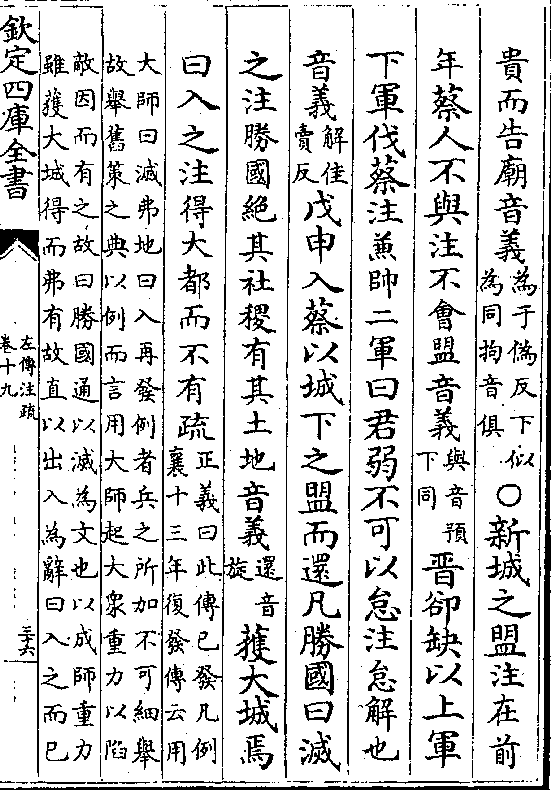 貴而告廟音義為于偽反下似為同拘音俱○新城之盟注在前
年蔡人不與注不會盟音義與音預下同晉郤缺以上軍
下軍伐蔡注兼帥二軍曰君弱不可以怠注怠解也
音義解佳賣反戊申入蔡以城下之盟而還凡勝國曰滅
之注勝國絶其社稷有其土地音義還音旋獲大城焉
曰入之注得大都而不有疏正義曰此傳已發凡例襄十三年復發傳云用
大師曰滅弗地曰入再發例者兵之所加不可細舉
故舉舊策之典以例而言用大師起大衆重力以陷
敵因而有之故曰勝國通以滅為文也以成師重力
雖獲大城得而弗有故直以出入為辭曰入之而已
欽定四庫全書
左傳注疏
卷十九
三十六